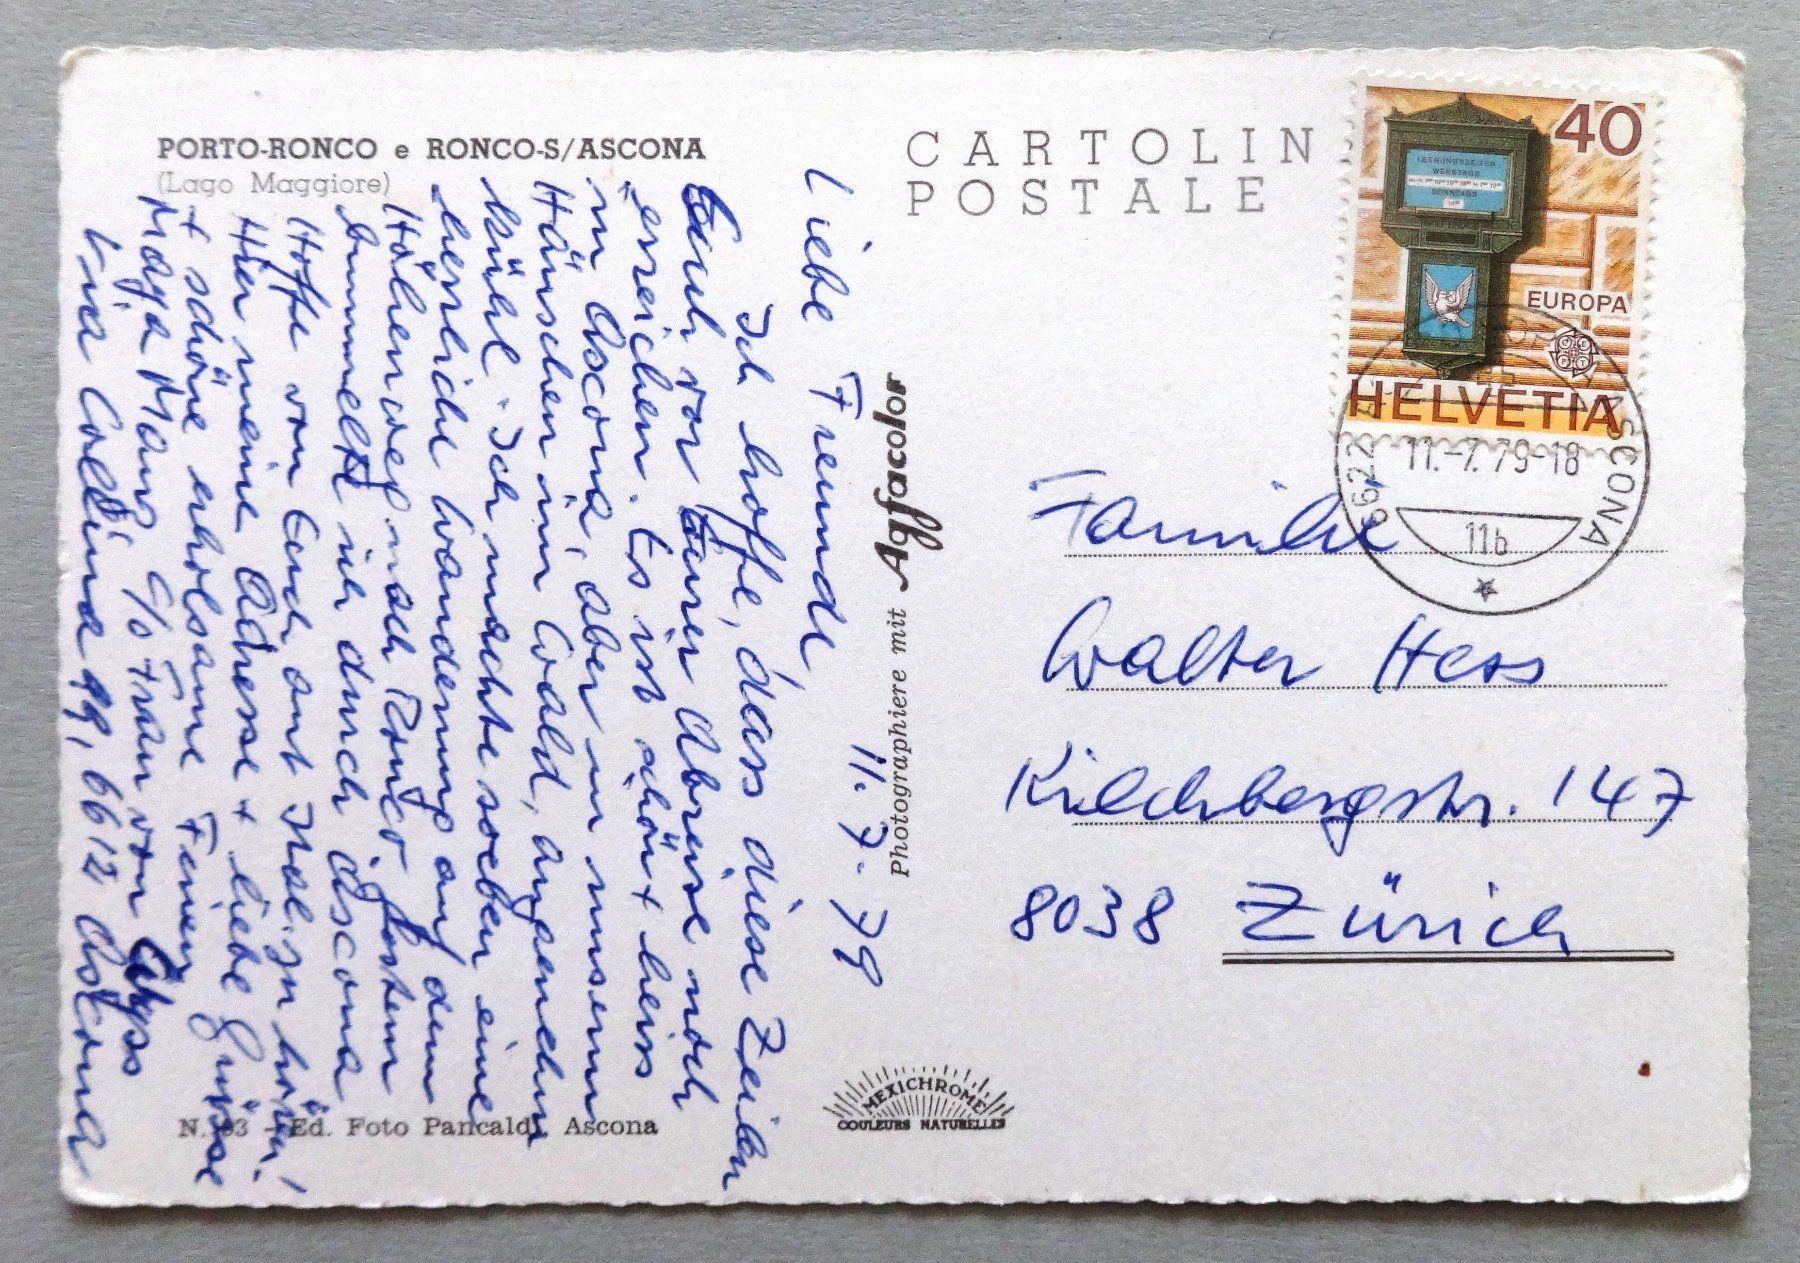 PORTO-RONCO e RONCO-S/ASCONA
(Lago Maggiore)
CARTOLIN
POSTALE
40
LEERUNGSZEITEN
WERKTAGS
SONNTAGS
EUROPA
HELVETIA
6622 ASCONA
11.-7.79-18
11b
11. 7. 79
Liebe Freunde
Ich hoffe, dass diese Zeilen
Euch vor Eurer Abreise noch
erreichen. Es ist schön + heiss
in Ascona, aber in unserm
Häuschen im Wald, angenehm
kühl. Ich machte soeben eine
herrliche Wanderung auf dem
Höhenweg nach Ronco. Gestern
bummelte ich durch Ascona
Hoffe von Euch aus zu hören!
Hier meine Adresse + liebe Grüsse
+ schöne erholsame Ferien
Maya Manz c/o Frau von Wyss
Via Collina 49, 6612 Ascona
Photographiere mit Agfacolor
Familie
Walter Hess
Kilchbergstr. 147
8038 Zürich
MEXICHROME
COULEURS NATURELLES
N. 93 - Ed. Foto Pancaldi, Ascona